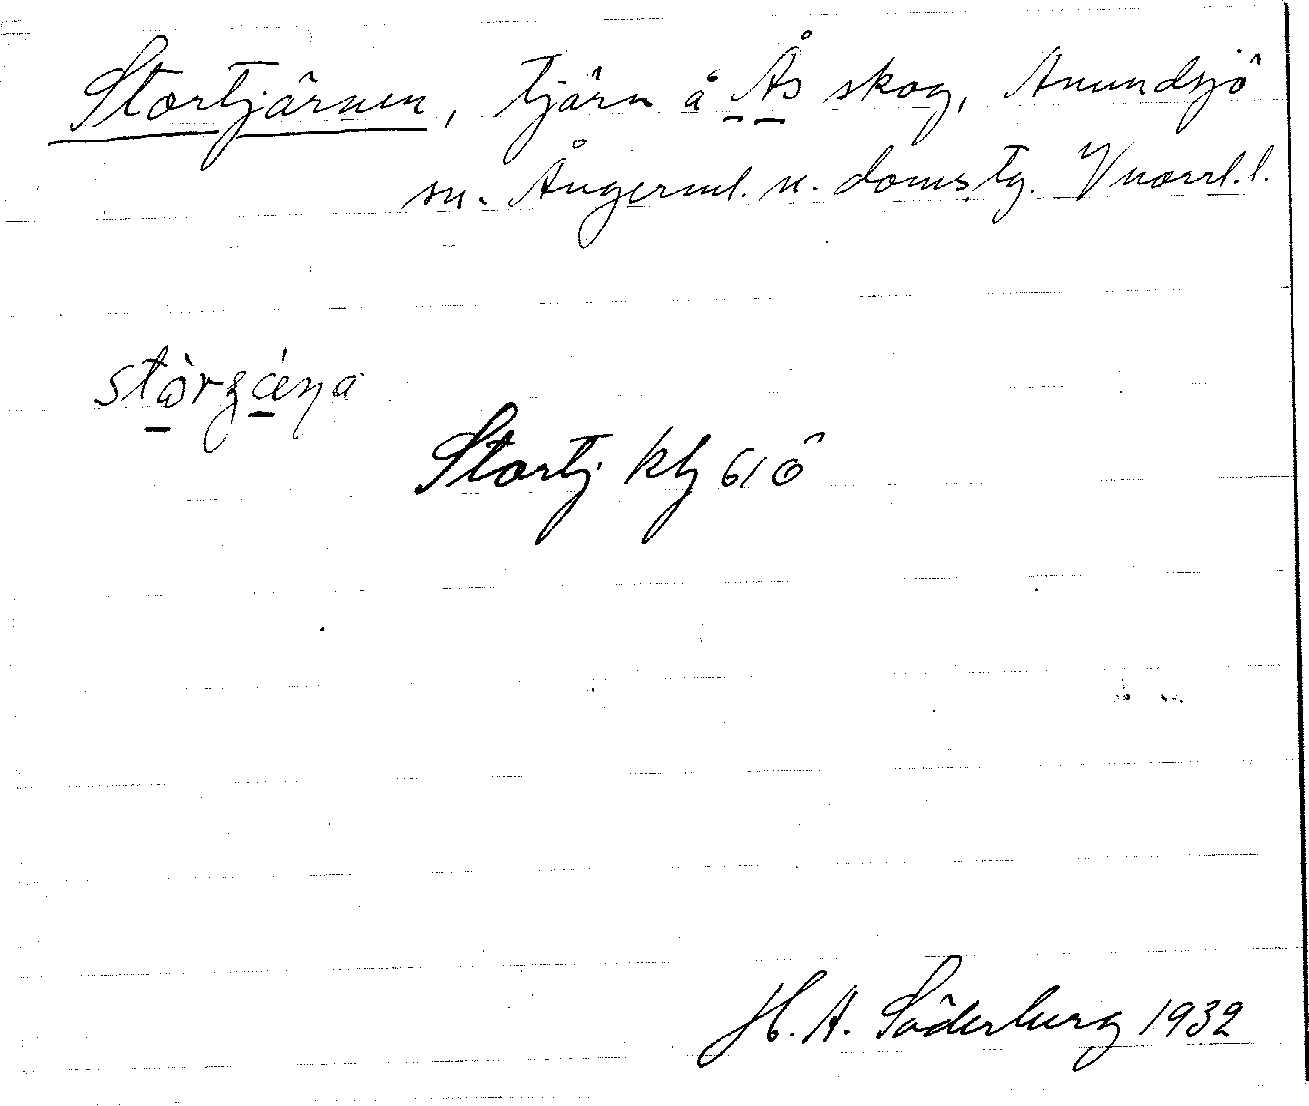 Stortjärnen, tjärn å Ås skog, Anundsjö
sn. Ångerml. n. doms.tg. Vnorrl.l.
Stortj kbl 61 ö
H. A. Söderberg 1932